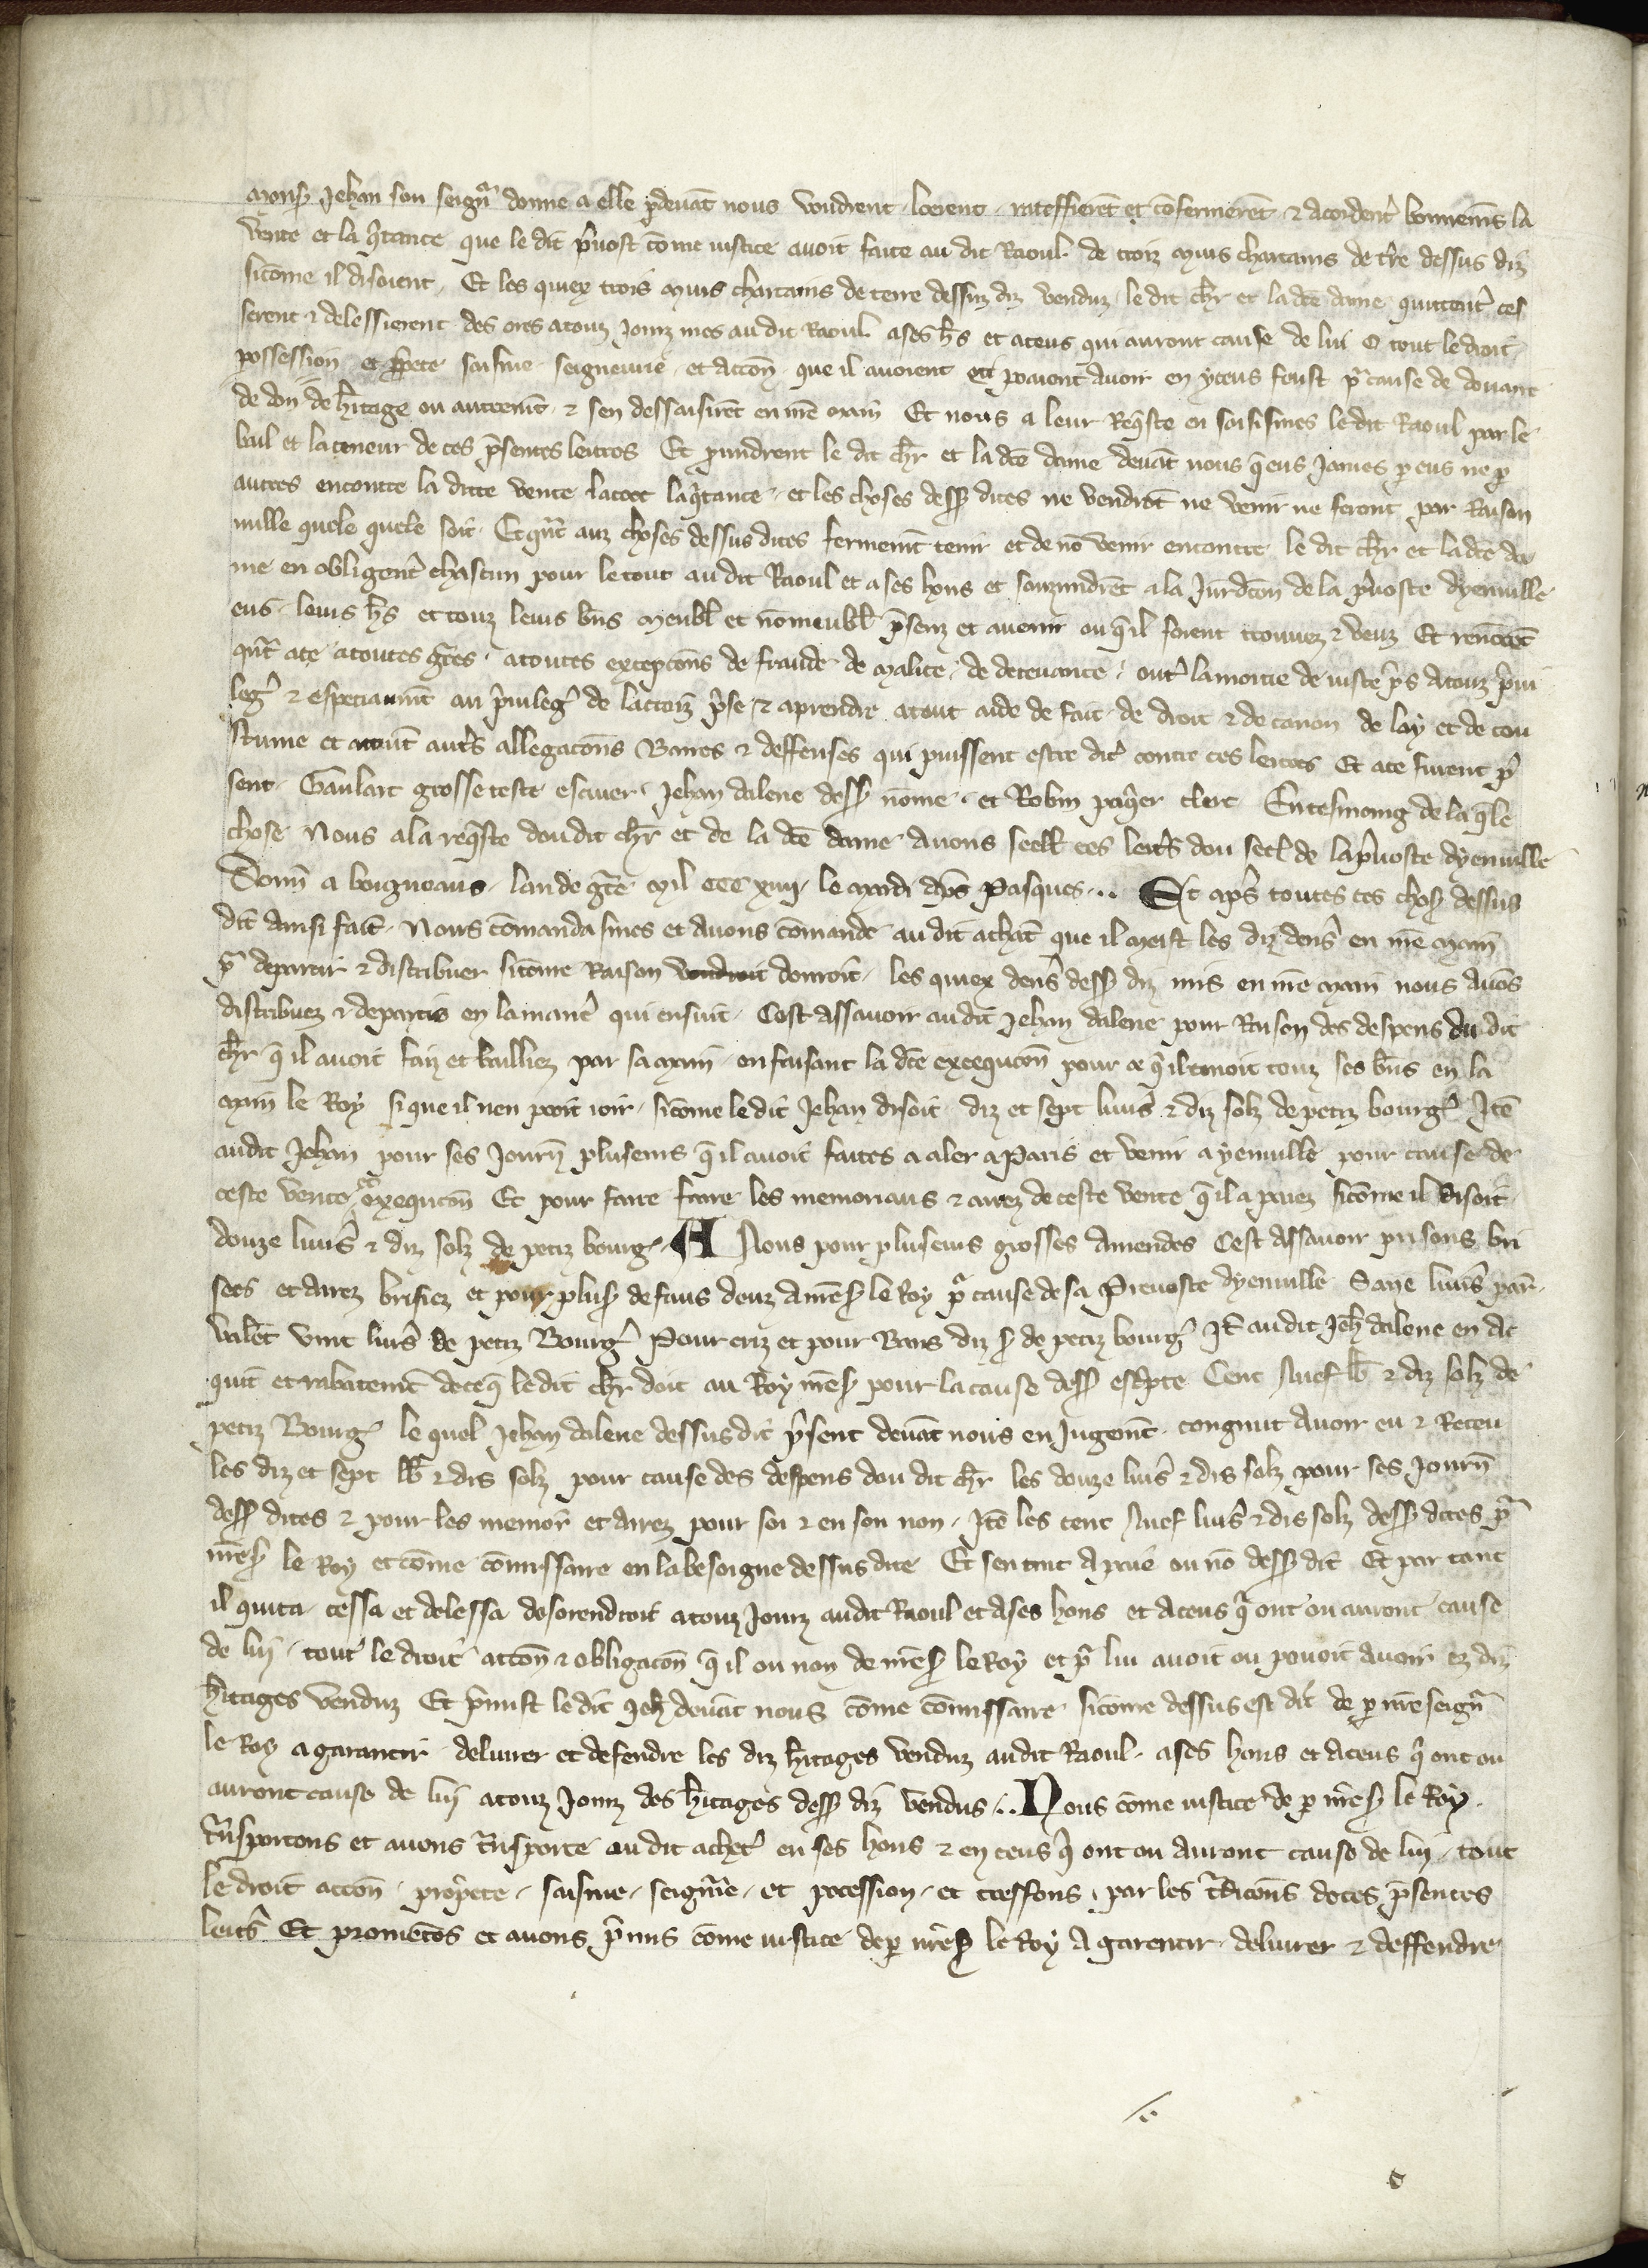 Mons᷒ Jehan son seign᷑ donne a elle p̱devāt nous voudrent loerent ratefierēt et cōfermerēt ⁊ acorderēt bonnemēt la
vente et la q̾tance que le dit p̾vost cōme justice avoit faite au dit Raoul de troiz muis chartains de tr̄re dessus diz
sicōme il disoient Et les quiex trois muis chartains de terre dessuz diz venduz le dit ch̄r et la dcē dame quittent̾ ces
serent ⁊ delessierent des ores a touz jourz mes au dit Raoul a ses h̄s et a ceus qui auront cause de lui o tout le droit
possession et ꝓpete saisine seigneurie et accōn que il avoient et pooient avoir en yceus feust p᷑ cause de douaire
de don de h̄itage ou autremēt ⁊ sen dessaisirēt en nr̄e main Et nous a leur req̄ste en saisismes le dit Raoul par le
bail et la teneur de ces p̄sentes lettres Et p̱mdrent le dit ch̄r et la dcē dame devāt nous q̄ eus james p̱ eus ne p̱
autres encontre la dicte vente lacort la q̾tance et les choses dess᷒ dites ne vendrōt ne venir ne feront par raison
nulle quele quele soit Et q̄nt aus choses dessus dites fermemēt tenir et de nō venir encontre le dit ch̄r et la dcē da
me en obligent̾ chascun pour le tout au dit Raoul et a ses hoirs et souzmdrēt a la jurdicōn de la p̾voste dyenville
eus leurs h̄s et touz leurs bn̄s meubl̄ et nōmeubl̄ p̄senz et avenir ou q̄ il soient trouvez ⁊ veuz Et renōcēt
q̄nt a ce a toutes gr̄ces a toutes excepcōns de fraude de malice de decevance outr̾ la moitie de juste p̾s a touz p̾vi
leg᷒ ⁊ especiaumēt au p̾vileg᷒ de la croiz p̾se ⁊ a prendre a tout aide de fait de droit ⁊ de canon de loy et de cou
stume et a tout autrs̾ allegacōns barres ⁊ deffenses qui puissent estre dit᷒ contre ces lettres Et a ce furent p̾
sent Gaulart grosse teste escuier Jehan dalene dess᷒ nōme et Robin clerc En tesmoing de la q̄le
chose Nous a la req̄ste dou dit ch̄r et de la dcē dame avons seell̄ ces lettrs̾ dou seel de la p̾voste dyenville
Donn̄ a boigneaus lan de gr̄ce mil ccc xiiij le mardi apr̄s pasques Et apr̄s toutes ces chos᷒ dessus
dit̄ ainsi fait̄ Nous cōmandasmes et avons cōmande au dit achat̄ que il meist les diz denrs̾ en nr̄e main
p᷑ departir ⁊ distribuer sicōme raison donroit les quiex denrs̾ dess᷒ diz mis en nr̄e main nous avōs
distribuez ⁊ departis en la manr̾e qui ensuit Cest assavoir au dit Jehan dalene pour raison des despens du dit
ch̄r q̄ il avoit faiz et bailliez par sa main en faisant la dcē execqucōn pour ce q̄ il tenoit touz ses bn̄s en la
main le Roy si que il nen pooit joir sicōme le dit Jehan disoit diz et sept livrs̾ ⁊ diz solz de petiz bourg᷒ Itē
audit Jehan pour ses journ̄ pluseurs q̄ il avoit faites a aler a Paris et venir a yenville pour cause de
ceste vente ⁊ execqucōn Et pour faire faire les memoriaus ⁊ de ceste vente q̄ il a paiez sicōme il disoit
douze livrs̾ ⁊ diz solz de petiz bourg᷒ A Nous pour pluseurs grosses amendes Cest assavoir prisons bri
sees et arrez brisiez et pour plus᷒ defaus deuz a mēs᷒ le Roy p᷑ cause de sa Prevoste dyenville livrs̾ par̄
valēt vint livrs̾ de petiz Bourg᷒ Pour criz et pour Bans diz s᷒ de petiz bourg᷒ It̄ au dit Jeh̄ dalene en ac
quit et rabatemēt de ce q̄ le dit ch̄r doit au Roy mēs᷒ pour la cause dess᷒ escr̄pte Cent Nuef lb̄ ⁊ diz solz de
petiz Bourg᷒ le quel Jehan dalene dessus dit p̾sent devāt nous en jugemēt congnut avoir eu ⁊ receu
les diz et sept lb̄ ⁊ dis solz pour cause des despens dou dit ch̄r les douze livrs̾ ⁊ dis solz pour ses journ̄
dess᷒ dites ⁊ pour les memor̄ et pour soi ⁊ en son non Itē les cent Nuef livrs̾ ⁊ dis solz dess᷒ dites p᷑
mēs᷒ le Roy et cōme cōmissaire en la besoigne dessus dite Et sen tint a paie ou nō dess᷒ dit Et par tant
il quita cessa et delessa desorendroit a touz jourz audit Raoul et a ses hoirs et a ceus q̾ ont ou auront cause
de lui tout le droit accōn ⁊ obligacōn q̄ il ou non de mēs᷒ le Roy et p᷑ lui avoit ou povoit avoir ez diz
h̄itages venduz Et p̾mist le dit Jeh̄ devāt nous cōme cōmissaire sicōme dessus est dit de p̱ nr̄e seign᷑
le Roy a garantir delivrer et defendre les diz h̄itages venduz audit Raoul a ses hoirs et a ceus q̾ ont ou
auront cause de lui a touz jourz des h̄itages dess᷒ diz vendus Nous cōme justice de p̱ nr̄es᷒ le Roy
tn̄sportons et avons tn̄sporte au dit achet̾ en ses hoirs ⁊ en ceus q̾ ont ou auront cause de lui tout
le droit accōn prop̾ete saisine seign̄rie et pocession et tressons par les tradicōns de ces p̄sentes
lettrs̾ Et prometōs et avons p̾mis cōme justice de p̱ nr̄es᷒ le Roy a garentir delivrer ⁊ deffendre